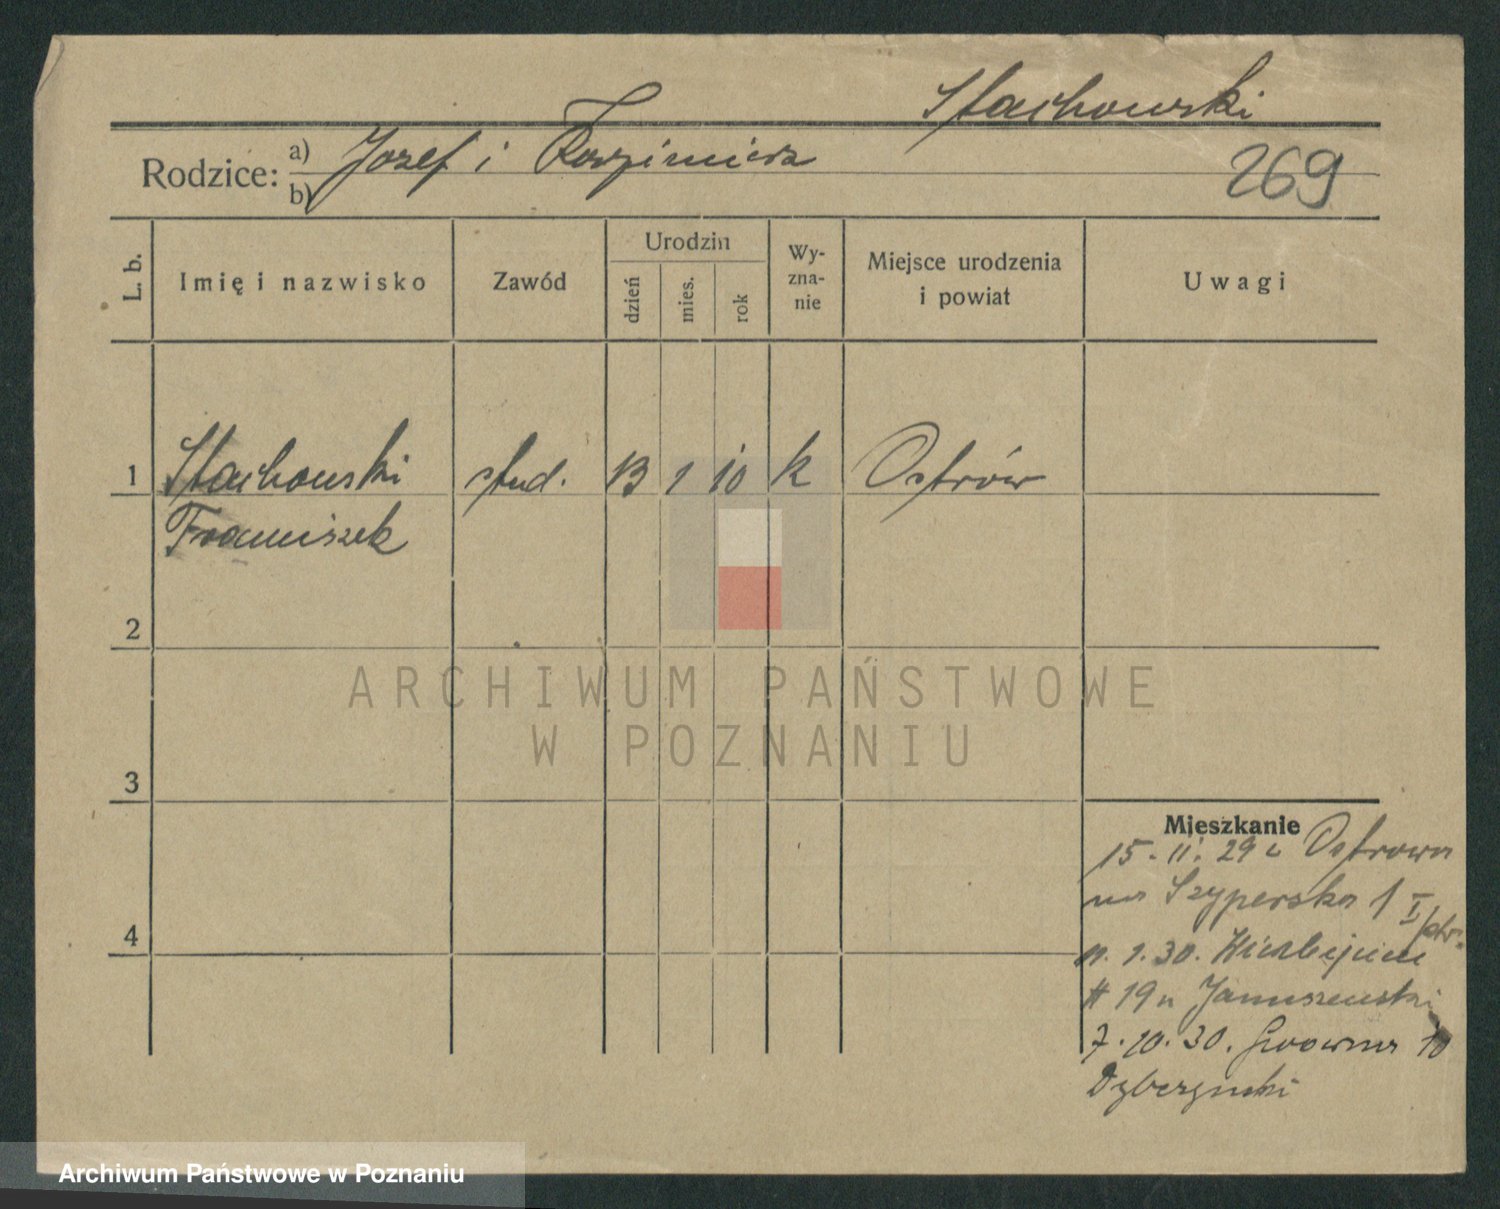 Stachowski
Rodzice: a) Jozef i Kazimiera
b)
269
L. b.
Imię i nazwisko
Zawód
Urodzin
dzień
mies.
rok
Wy-
zna-
nie
Miejsce urodzenia
i powiat
Uwagi
1 Stachowski stud. 13 1 10 k Ostrów
Franciszek
2
3
4
Mieszkanie
15. 11. 29 z Ostrowa
na Szyperska 1 I
1. 30.
19 Januszewski
7. 10. 30. 10
ARCHIWUM PAŃSTWOWE
W POZNANIU
Archiwum Państwowe w Poznaniu